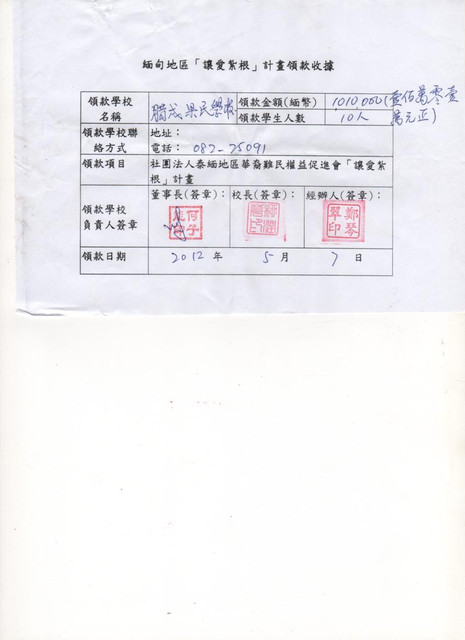 緬甸地區「讓愛紮根」計畫領款收據
領款學校
名稱
臘戌果民學校
領款金額(緬幣)
1010,000(壹佰萬零壹
萬元正)
領款學生人數
10人
領款學校聯
絡方式
地址：
電話： 082-25091
領款項目
社團法人泰緬地區華裔難民權益促進會「讓愛紮
根」計畫
領款學校
負責人簽章
董事長(簽章):
校長(簽章):
經辦人(簽章):
鄭琴
翠印
領款日期
2012 年 5 月 7 日